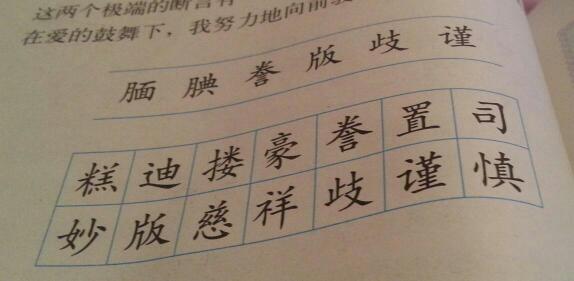 这两个极端的断言有
在爱的鼓舞下，我努力地向前驶
腼 腆 誊 版 歧 谨
糕 迪 搂 豪 誊 置 司
妙 版 慈 祥 歧 谨 慎